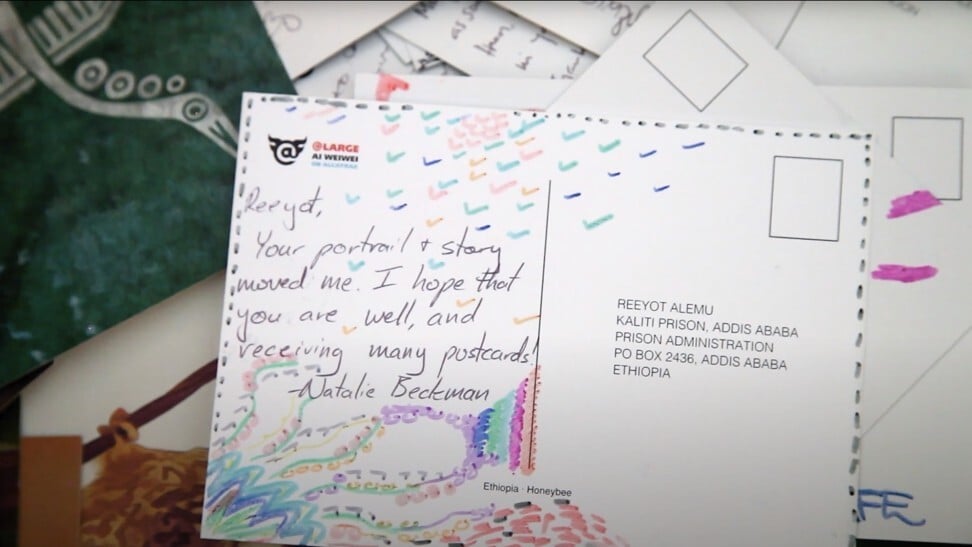 @LARGE
AI WEIWEI
ON ALCATRAZ
Reeyot,
Your portrait + story
moved me. I hope that
you are well, and
receiving many postcards!
-Natalie Beckman
REEYOT ALEMU
KALITI PRISON, ADDIS ABABA
PRISON ADMINISTRATION
PO BOX 2436, ADDIS ABABA
ETHIOPIA
Ethiopia · Honeybee